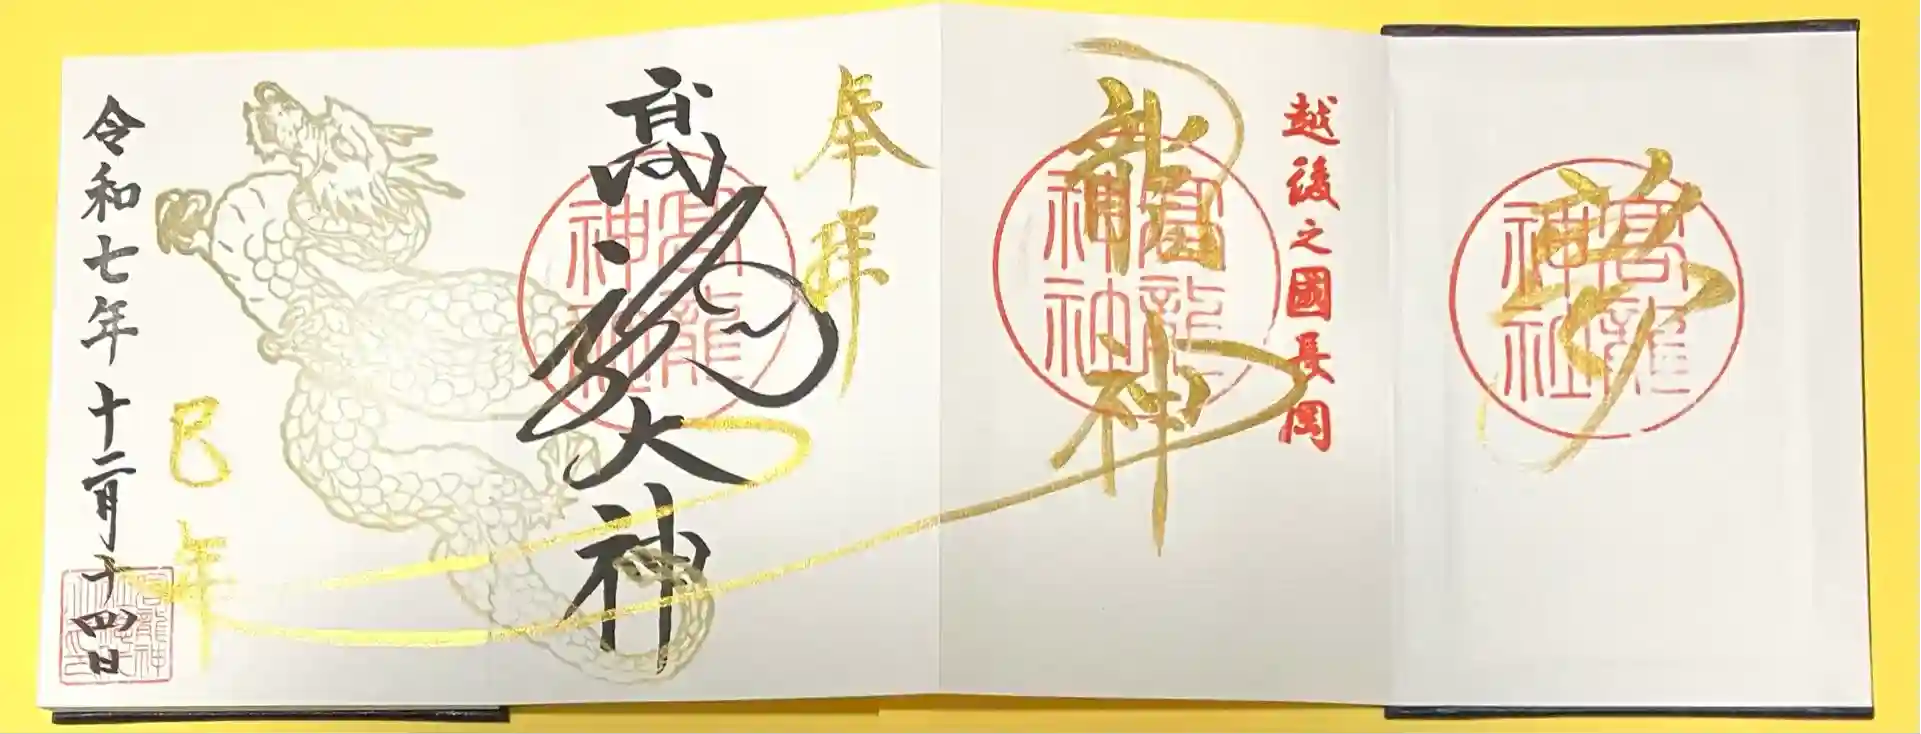 髙龍神社
越後之國長岡
龍神
髙龍神社
奉拝
髙龍大神
髙龍神社
巳年
令和七年十二月十四日